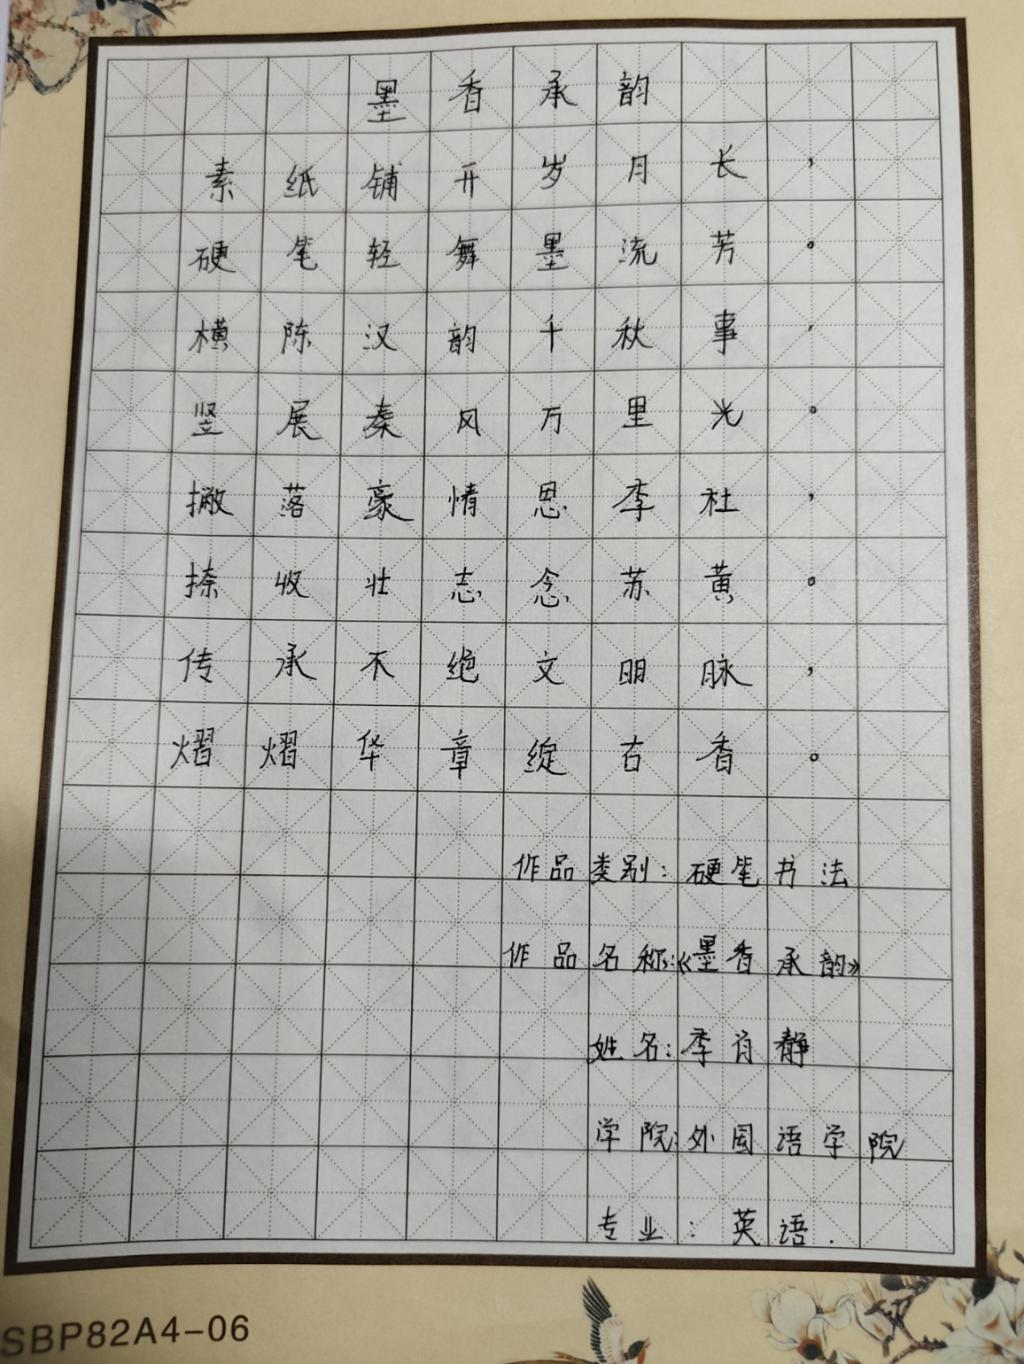 墨香承韵
素纸铺开岁月长，
硬笔轻舞墨流芳。
横陈汉韵千秋事，
竖展秦风万里光。
撇落豪情思李杜，
捺收壮志念苏黄。
传承不绝文明脉，
熠熠华章绽古香。
作品类别：硬笔书法
作品名称：《墨香承韵》
姓名：李肖静
学院：外国语学院
专业：英语.
SBP82A4-06